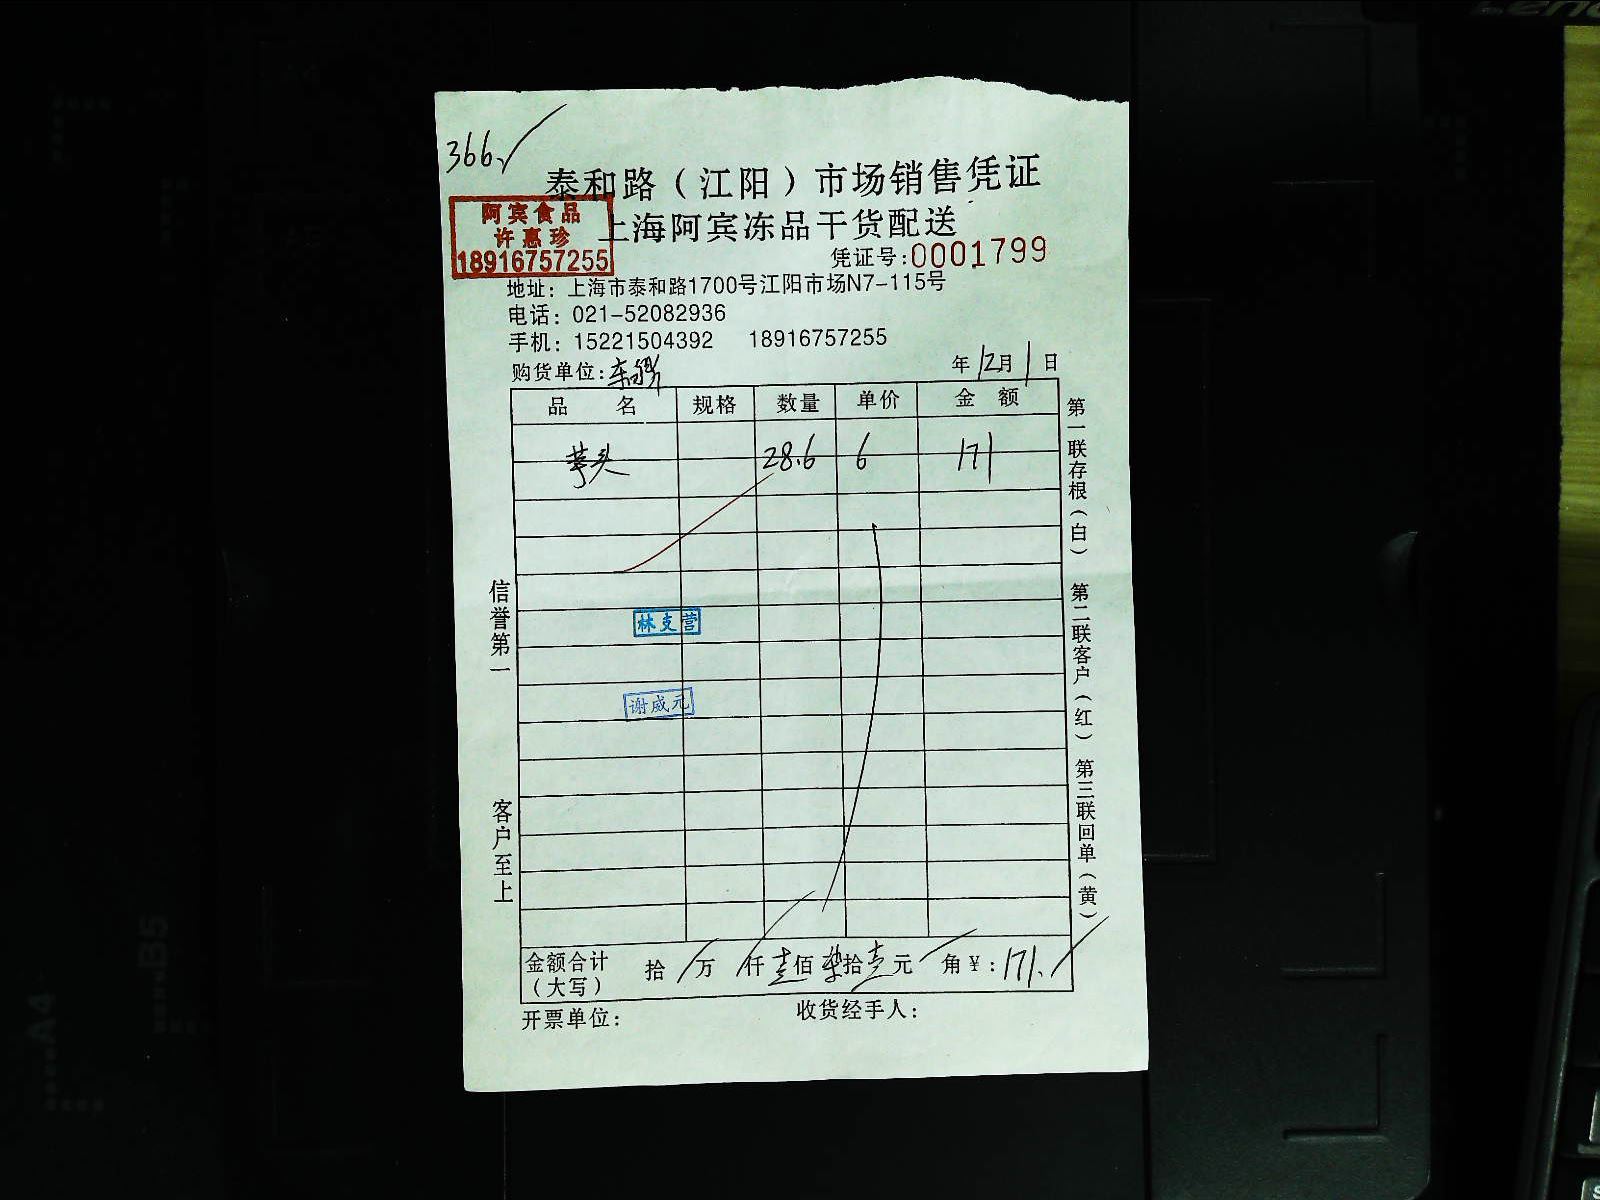 366
泰和路（江阳）市场销售凭证
上海阿宾冻品干货配送
阿宾食品
许惠珍
18916757255
凭证号:0001799
地址：上海市泰和路1700号江阳市场N7-115号
电话：021-52082936
手机：15221504392 18916757255
购货单位:
年12月1日
品名 规格 数量 单价 金额
芋头 28.6 6 171
林支营
谢威元
信誉第一
客户至上
第一联存根（白） 第二联客户（红） 第三联回单（黄）
金额合计 拾 万 仟壹佰柒拾壹元 角￥:171.
（大写）
开票单位: 收货经手人: